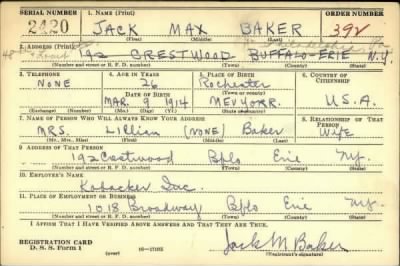 SERIAL NUMBER 1. NAME (Print) ORDER NUMBER
2420 JACK MAX BAKER 392
(First) (Middle) (Last)
Philadelphia Pa
2. ADDRESS (Print)
192 CRESTWOOD BUFFALO-ERIE N.Y.
(Number and street or R. F. D. number) (Town) (County) (State)
3. TELEPHONE 4. AGE IN YEARS 5. PLACE OF BIRTH 6. COUNTRY OF CITIZENSHIP
NONE 26 Rochester
DATE OF BIRTH (Town or county)
MAR. 9 1914 NEW YORK. U.S.A.
(Exchange) (Number) (Mo.) (Day) (Yr.) (State or country)
7. NAME OF PERSON WHO WILL ALWAYS KNOW YOUR ADDRESS 8. RELATIONSHIP OF THAT PERSON
MRS. Lillian (NONE) Baker Wife
(Mr., Mrs., Miss) (First) (Middle) (Last)
9. ADDRESS OF THAT PERSON
192 Crestwood Bflo Erie N.Y.
(Number and street or R. F. D. number) (Town) (County) (State)
10. EMPLOYER'S NAME
Kobacker Inc.
11. PLACE OF EMPLOYMENT OR BUSINESS
1018 Broadway Bflo Erie N.Y.
(Number and street or R. F. D. number) (Town) (County) (State)
I AFFIRM THAT I HAVE VERIFIED ABOVE ANSWERS AND THAT THEY ARE TRUE.
REGISTRATION CARD
D. S. S. Form 1 (over) 16—17105 Jack M Baker
(Registrant's signature)